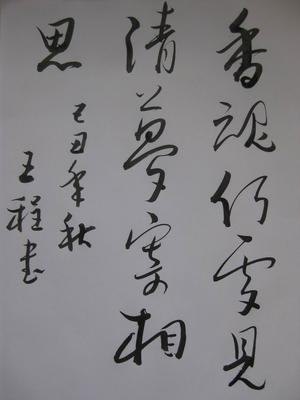 香魂何处见
清梦寄相
思
己丑年秋
王程书